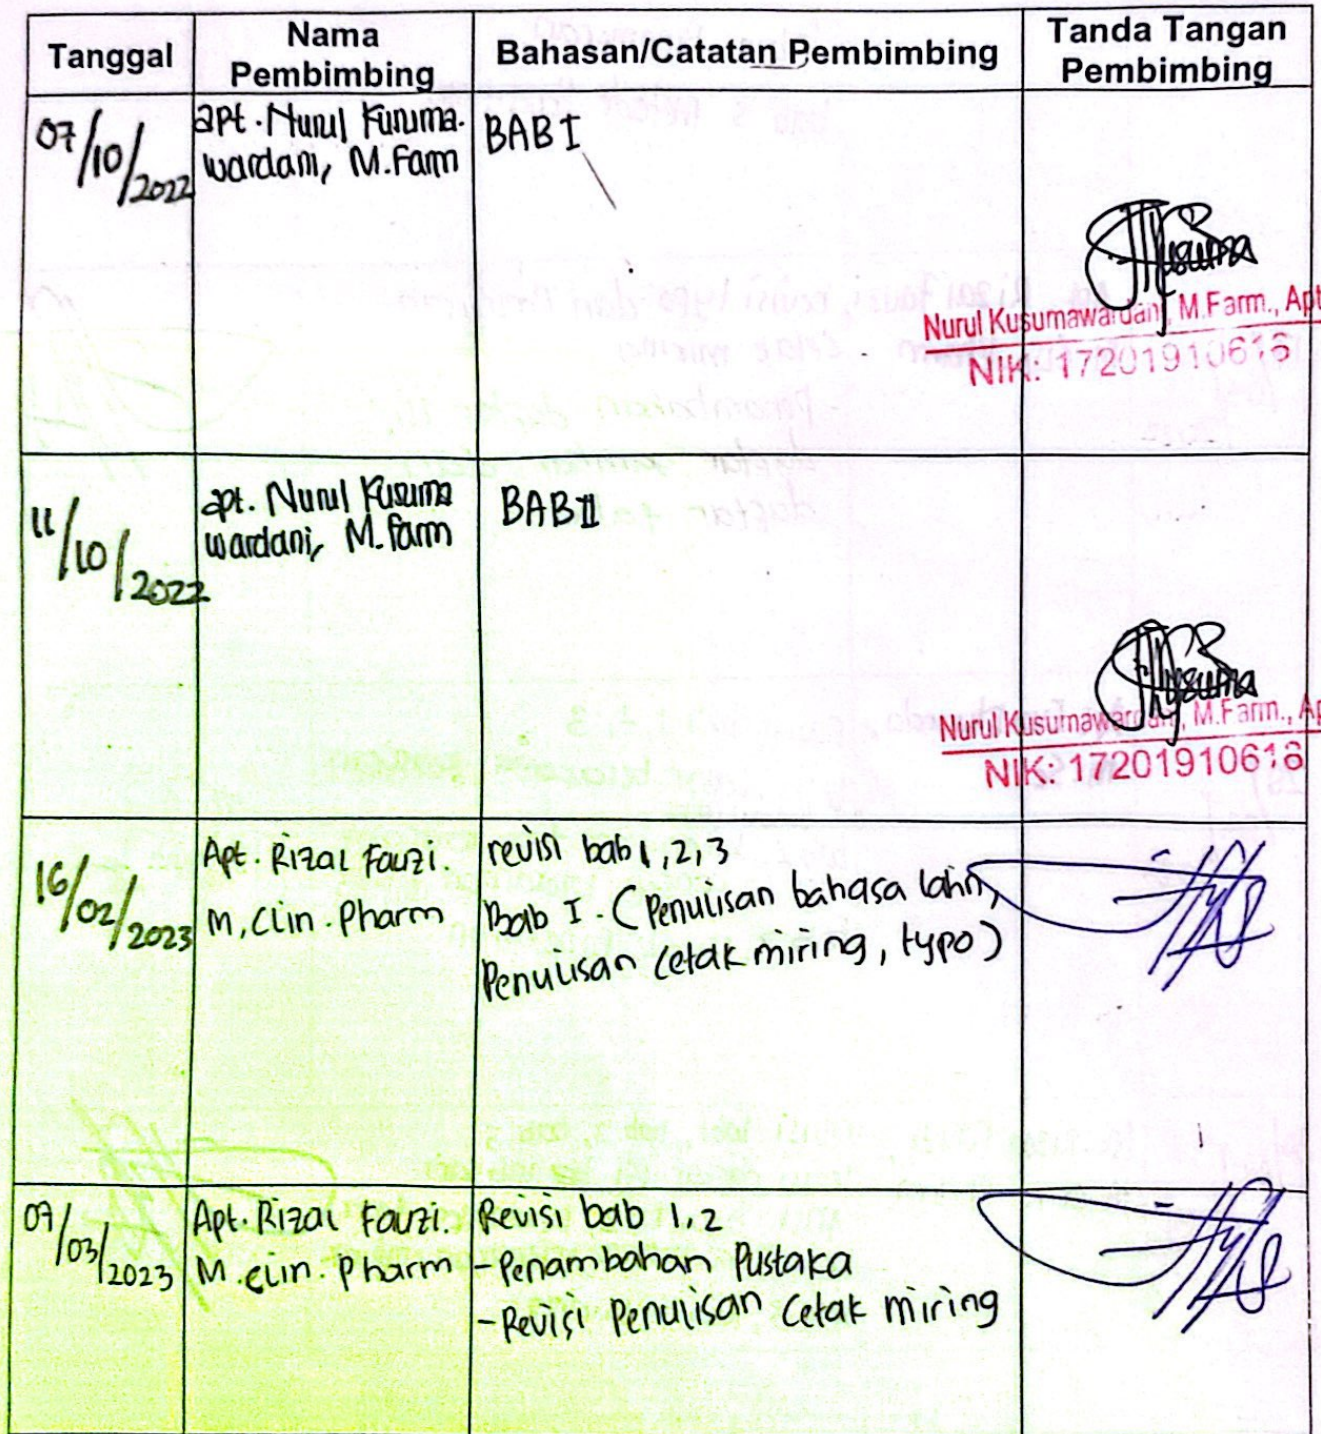 Tanggal
Nama
Pembimbing
Bahasan/Catatan Pembimbing
Tanda Tangan
Pembimbing
07/10/2022
apt. Nurul Kusuma-
wardani, M.Farm
BAB I
Nurul Kusumawardani, M.Farm., Apt
NIK: 17201910616
11/10/2022
apt. Nurul Kusuma
wardani, M.Farm
BAB II
Nurul Kusumawardani, M.Farm., Ap
NIK: 17201910616
16/02/2023
Apt. Rizal Fauzi.
M, Clin. Pharm
revisi bab 1, 2, 3
Bab I. (Penulisan bahasa lain,
Penulisan cetak miring, typo)
07/03/2023
Apt. Rizal Fauzi.
M. Clin. Pharm
Revisi bab 1, 2
- Penambahan Pustaka
- Revisi Penulisan Cetak miring